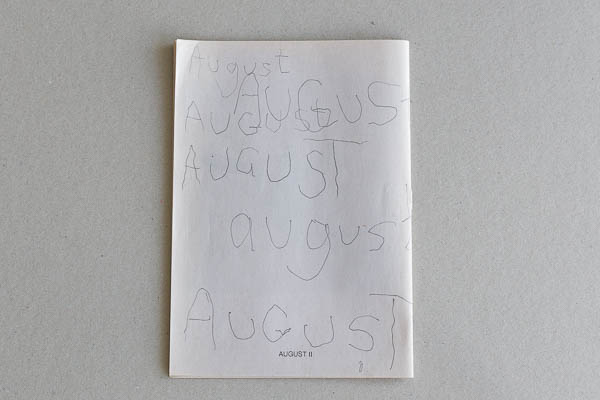 August
AUGUST
AUGUST
AUGUST
august
AUGUST
AUGUST II